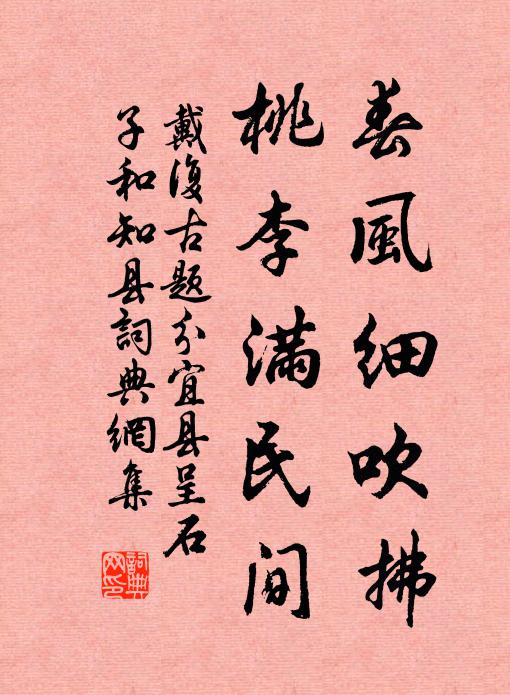 春風细吹拂
桃李滿民间
戴復古题分宜县呈石
子和知县詞典網集
詞典
网印